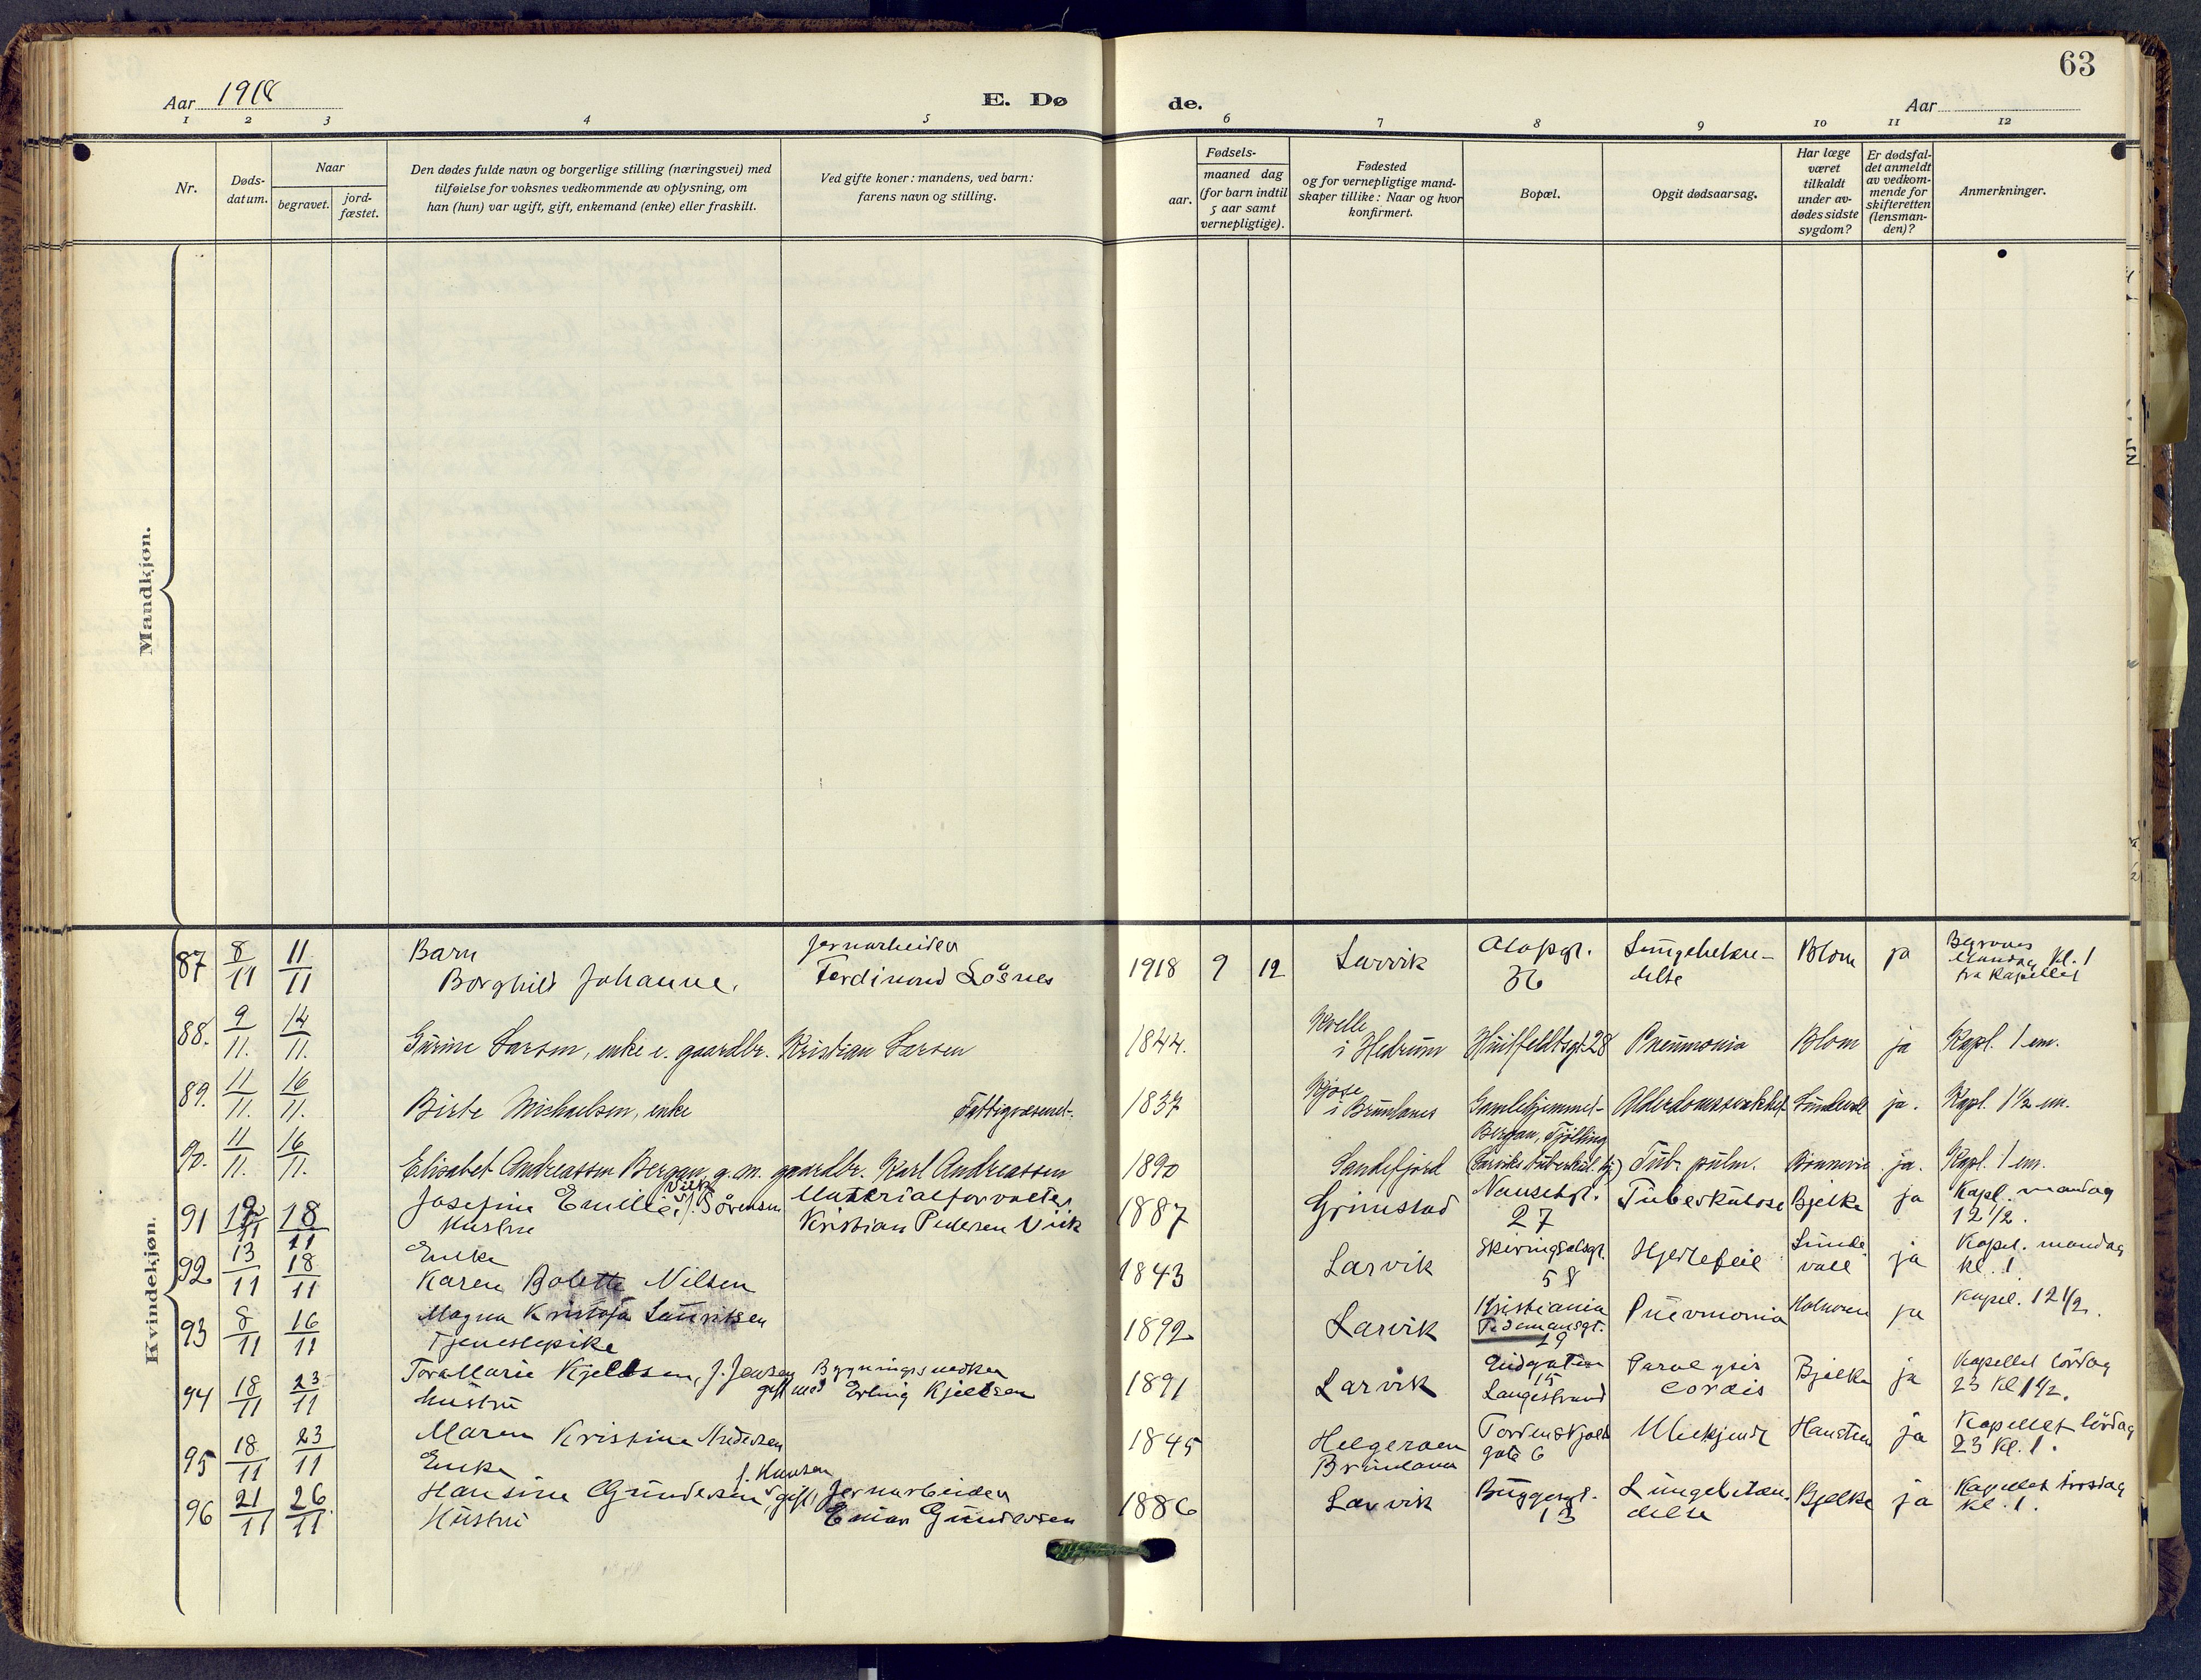 63
Aar 1918
E. Dø
de.
Aar
1 2 3 4 5 6 7 8 9 10 11 12
Nr.
Døds-
datum.
Naar
begravet.
jord-
fæstet.
Den dødes fulde navn og borgerlige stilling (næringsvei) med
tilføielse for voksnes vedkommende av oplysning, om
han (hun) var ugift, gift, enkemand (enke) eller fraskilt.
Ved gifte koner: mandens, ved barn:
farens navn og stilling.
Fødsels-
aar.
maaned dag
(for barn indtil
5 aar samt
vernepligtige).
Fødested
og for vernepligtige mand-
skaper tillike: Naar og hvor
konfirmert.
Bopæl.
Opgit dødsaarsag.
Har læge
været
tilkaldt
under av-
dødes sidste
sygdom?
Er dødsfal-
det anmeldt
av vedkom-
mende for
skifteretten
(lensman-
den)?
Anmerkninger.
Mandkjøn.
Kvindekjøn.
87 8/11 11/11
Barn
Borghild Johanne.
Jernarbeider
Ferdinand Løsnes
1918 9 12 Larvik
36
Lungebeten-
delse
Blom ja
Begraves
Mandag kl. 1
fra Kapellet
88. 9/11. 14/11.
Gurine Larsen, enke e. gaardbr. Kristian Larsen
1844.
Kvelle
i Hedrum
Huitfeldtsgt 28 Pneumonia Blom ja Kapl. 1 em.
89. 11/11. 16/11.
Birte Michaelsen, enke
Fattigvæsenet.
1837
Kjose
i Brunlanes
Gamlehjemmet Alderdomssvakhet Lundevall ja. Kapl. 1½ em.
90. 11/11. 16/11.
Elisabet Andreassen Bergan, g. m. gaardbr. Karl Andreassen
1890 Sandefjord
Bergan, Tjølling
Tub. pulm. ja. Kapl. 1 em.
91 18/11
Josefine Emilie Vik f. Sørensen
Hustru
Materialforvalter
Kristian Pedersen Viik
1887 Grimstad
Nansetgt.
27
Tuberkulose Bjelke ja
Kapl. mandag
12½.
92 13/11 18/11
Enke
Karen Bolette Nilsen
1843 Larvik
Skiringsalsgt.
58
Hjertefeil
Lunde
vall
ja
Kapel. mandag
kl. 1
93 8/11 16/11
Magna Kristofa Lauritsen
Tjenestepike
1892 Larvik
Kristiania
Tidemansgt.
29
Pnevmonia Holmren ja Kapel. 12½.
94 18/11 23/11
Tora Marie Kjeldsen, f. Jensen
Hustru gift med
Bygningssnedker
Erling Kjeldsen
1891 Larvik
15
Langestrand
Paralysis
cordis
Bjelke ja
Kapellet lördag
23 Kl 1½.
95 18/11 23/11
Maren Kristine Andersen
Enke
1845
Helgeroen
Brunlanes
Tordenskjolds
gate 6
Ubekjendt Hansteen ja
Kapellet lördag
23 Kl. 1.
96 21/11 26/11
Hansine Gundersen, f. Hansen gift
Hustru
Jernarbeider
Einar Gundersen
1886 Larvik
Byggesgt.
13
Lungebeten-
delse
Bjelke ja
Kapellet tirsdag
Kl. 1.